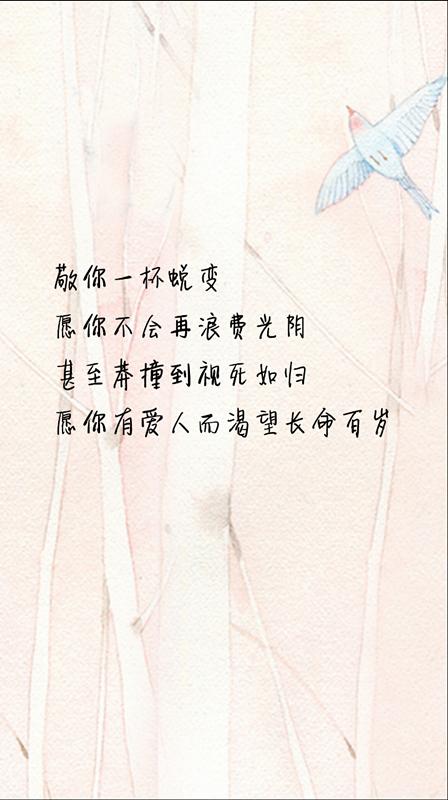 敬你一杯蜕变
愿你不会再浪费光阴
甚至莽撞到视死如归
愿你有爱人而渴望长命百岁